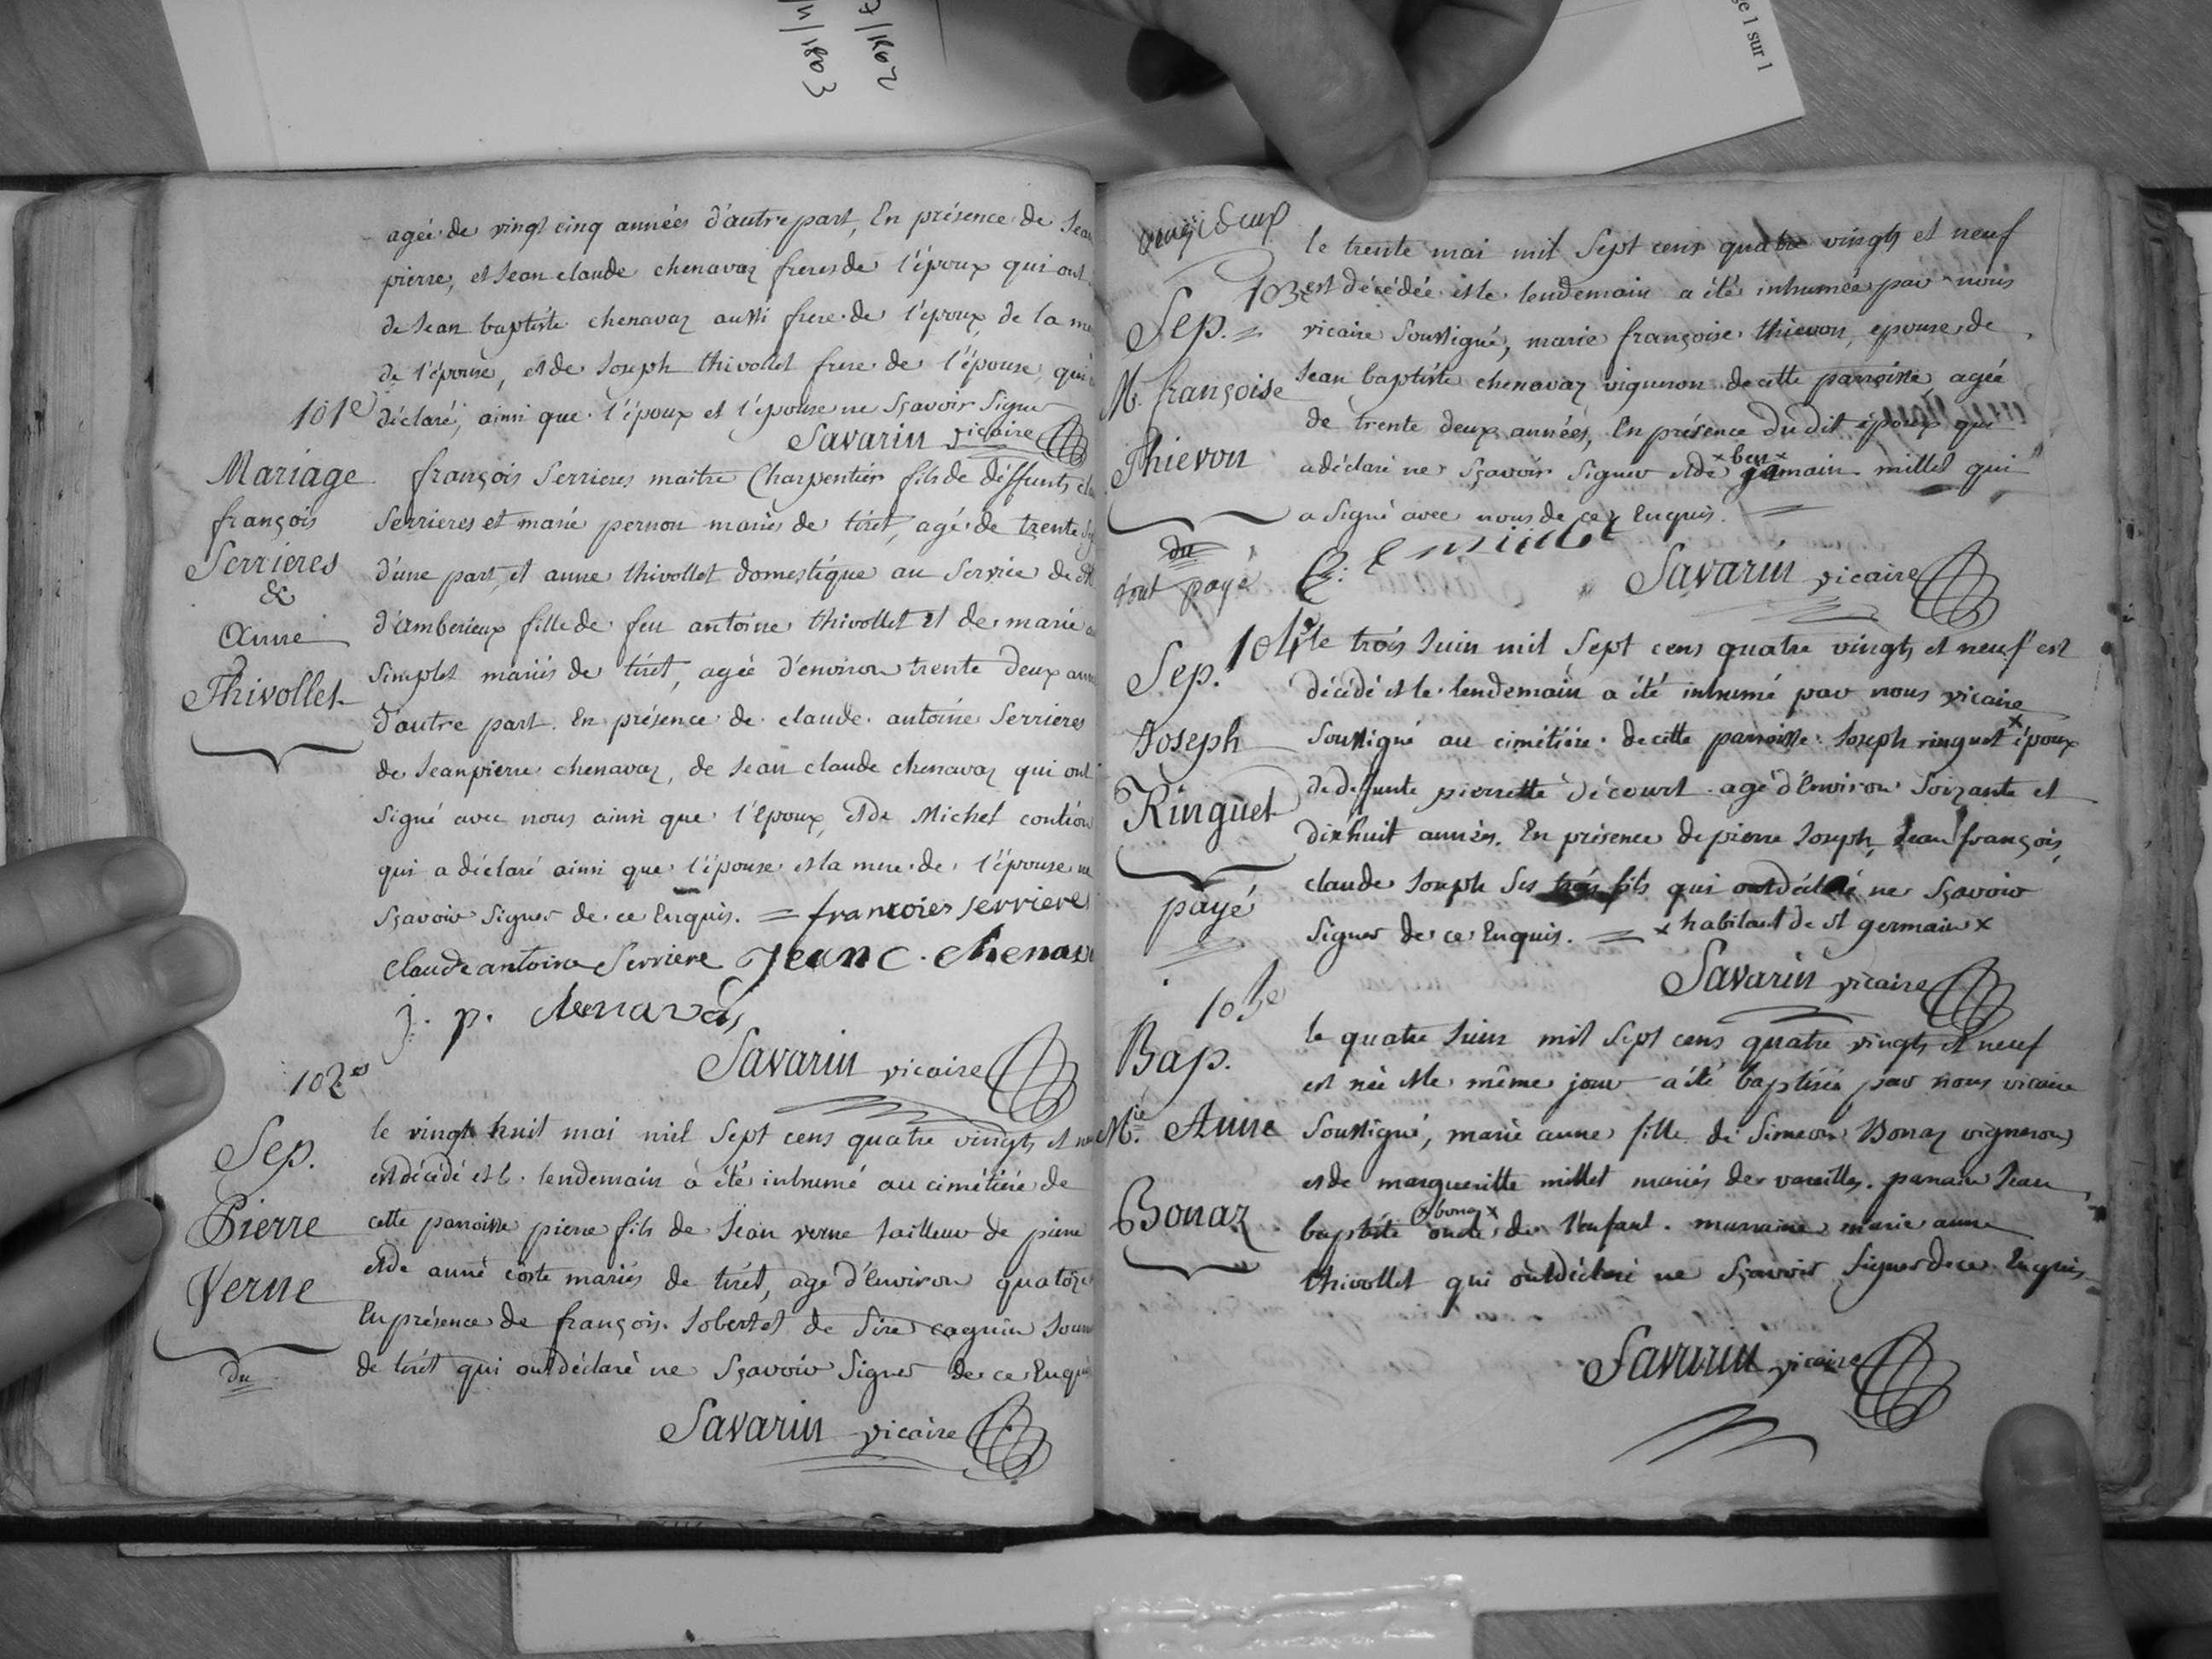 7/1802
11/1803
ge 1 sur 1
agée de vingt cinq années d'autre part, En présence de Jean
pierre, et Jean claude chenavaz freres de l'époux qui ont
de Jean baptiste chenavaz aussi frere de l'époux, de la
de l'épouse, et de Joseph thivollet frere de l'épouse, qui
déclaré, ainsi que l'époux et l'épouse ne Sçavoir Signer
Savarin vicaire
101e
Mariage
françois
Serrieres
&
Anne
Thivollet
françois Serrieres maitre Charpentier fils de deffunts
Serrieres et marie pernon mariés de tiret, agé de trente
d'une part, et anne thivollet domestique au Service de
d'amberieux fille de feu antoine thivollet et de marie
Simplet mariés de tirét, agée d'environ trente deux
d'autre part. En présence de claude antoine Serrieres
de Jean pierre chenavaz, de Jean claude chenavaz qui ont
Signé avec nous ainsi que l'époux, et de Michel
qui a déclaré ainsi que l'épouse et la mere de l'épouse
Sçavoir Signer de ce Enquis. = francoies serrieres
Claude antoine Serriere Jean C. chenava
j. p. chenavas
Savarin vicaire
102e
Sep.
Pierre
Verne
du
le vingt huit mai mil Sept cens quatre vingts et
est décédé et le lendemain à été inhumé au cimétiére de
cette parroisse pierre fils de Jean verne tailleur de pierre
et de anne coste mariés de tirét, agé d'Environ quatorze
En présence de françois Jobert et de Sire caguin
de tirét qui ont déclaré ne Sçavoir Signer de ce Enquis
Savarin vicaire
103e
Sep. =
M. françoise
Thievon
du
tout payé
le trente mai mil Sept cens quatre vingts et neuf
est décédée et le lendemain a été inhumée par nous
vicaire Soussigné, marie françoise thievon, epouse de
Jean baptiste chenavaz vigneron de cette parroisse agée
de trente deux années, En présence du dit époux qui
x ben x
a déclaré ne Sçavoir Signer et de germain millet qui
a Signé avec nous de ce Enquis. =
Savarin vicaire
104e
Sep.
Joseph
Ringuet
payé
le trois Juin mil Sept cens quatre vingts et neuf est
décédé et le lendemain a été inhumé par nous vicaire
Soussigné au cimétiére de cette parroisse Joseph ringuet x époux
de deffunte pierrette décourt agé d'Environ Soixante et
dix huit années. En présence de pierre Joseph, Jean françois,
claude Joseph Ses trois fils qui ont déclaré ne Sçavoir
Signer de ce Enquis. = x habitant de st germain x
Savarin vicaire
105e
Bap.
Mie. Anne
Bonaz
le quatre Juin mil Sept cens quatre vingts et neuf
est née et le même jour a été baptisée par nous vicaire
Soussigné, marie anne fille de Simeon Bonaz vigneron
et de margueritte millet mariés de vareilles. parrain Jean
x bonaz x
baptiste oncle de l'enfant. marraine marie anne
thivollet qui ont déclaré ne Sçavoir Signer de ce Enquis
Savarin vicaire